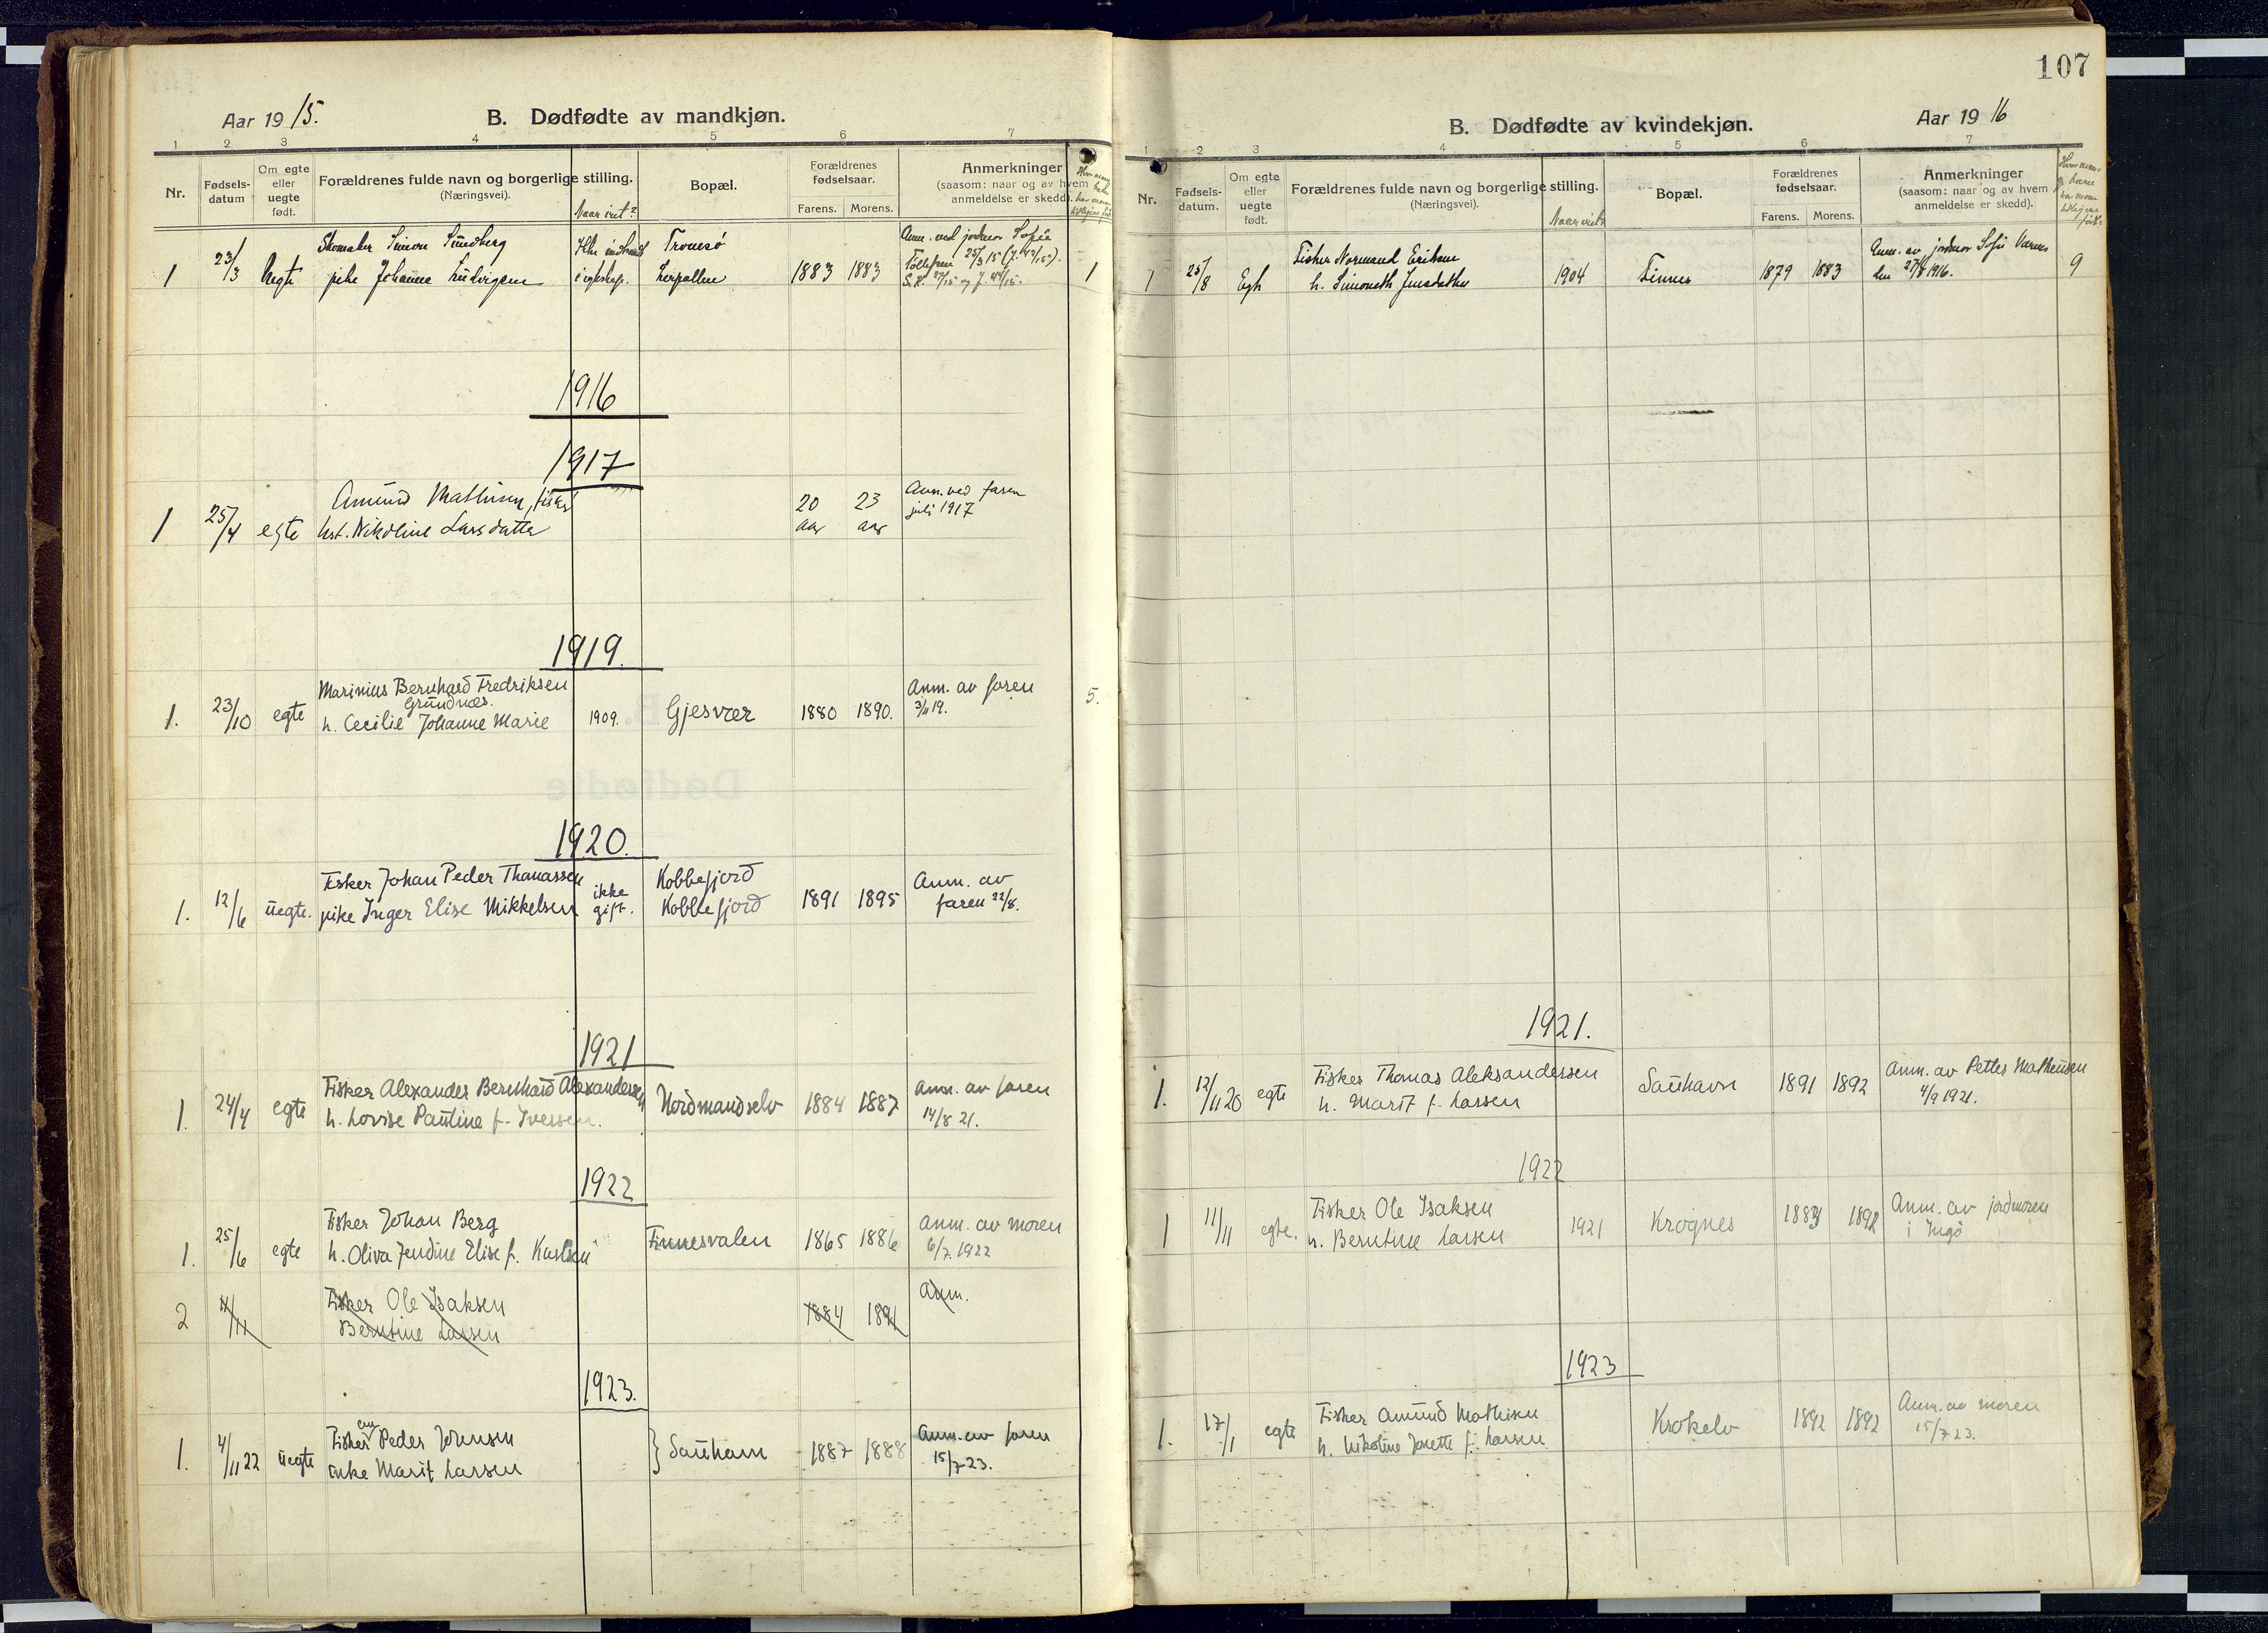 Aar 1915.
B. Dødfødte av mandkjøn.
1 2 3 4 5 6 7
Nr.
Fødsels-
datum
Om egte
eller
uegte
født.
Forældrenes fulde navn og borgerlige stilling.
(Næringsvei).
Naar viet?
Bopæl.
Forældrenes
fødselsaar.
Farens. Morens.
Anmerkninger
(saasom: naar og av hvem
anmeldelse er skedd).
1 23/3 Uegte
Skomaker Simon Sundberg
pike Johanna Ludvigsen
Ikke indtraadt
i egteskap.
Tromsø
1883 1883
Anm. ved jordmor Sofie
1
1916
1917
1 25/4 egte
Amund Mathisen, fisker
hst. Nikoline Larsdatter
20 aar 23 aar
Anm. ved faren
juli 1917
1919.
1. 23/10 egte
Marinius Bernhard Fredriksen
Grundnæs.
h. Cecilie Johanne Marie
1909.
Gjesvær
1880 1890.
Anm. av faren
3/11 19.
5.
1920.
1. 12/6 uegte.
Fisker Johan Peder Thomassen
pike Inger Elise Mikkelsen
ikke
gift.
Kobbefjord
Kobbefjord
1891 1895
Anm. av
faren 22/8.
1921
1. 24/4 egte
Fisker Alexander Bernhard Alexandersen
h. Lovise Pauline f. Iversen.
Nordmandselv
1884 1887
Anm. av faren
14/8 21.
1922
1. 25/6 egte
Fisker Johan Berg
h. Oliva Jendine Elise f. Karlsen
Finnesvalen
1865 1886
Anm. av moren
6/7 1922
2 11/11
Fisker Ole Isaksen
Berntine Larsen
1884 1891
Anm.
1923.
1. 4/11 22 uegte
Fisker Peder Johnsen
enke Marit Larsen
Sauhavn
1887 1888
Anm. av faren
15/7 23.
107
B. Dødfødte av kvindekjøn.
Aar 1916
1 2 3 4 5 6 7
Nr.
Fødsels-
datum.
Om egte
eller
uegte
født.
Forældrenes fulde navn og borgerlige stilling.
(Næringsvei).
Naar viet
Bopæl.
Forældrenes
fødselsaar.
Farens. Morens.
Anmerkninger
(saasom: naar og av hvem
anmeldelse er skedd).
1 25/8 Egte
Fisker Normand Eriksen
h. Simoneth Jensdatter
1904
Finnes
1879 1883
Anm. av jordmor Sofie
den 27/8 1916.
9
1921.
1. 12/11 20 egte
Fisker Thomas Aleksandersen
h. Marit f. Larsen
Sauhavn
1891 1892
Anm. av Petter Matheusen
4/9 1921.
1922
1 11/11 egte.
Fisker Ole Isaksen
h. Berntine Larsen
1921
Krognes
1892
Anm. av jordmoren
i Ingø
1923
1. 17/1 egte
Fisker Amund Mathisen
h. Nikoline Jonette f. Larsen
Krokelv
1892 1892
Anm. av moren
15/7 23.